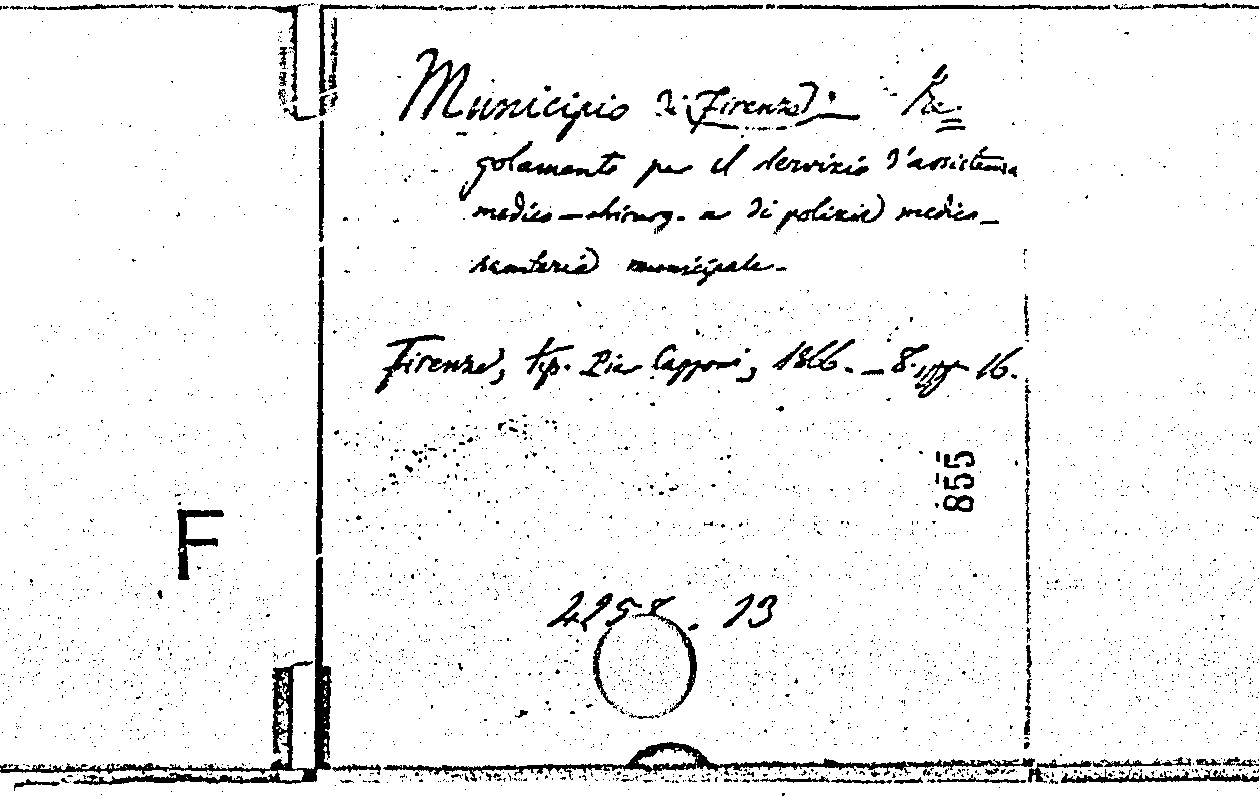 Municipio di (Firenze). — Re=
golamento per il servizio d'assistenza
medico-chirurg. e di polizia medico-
sanitaria municipale. -
Firenze, tip. Pia Capponi, 1866. - 8. pp 16.
855
F
4258. 13